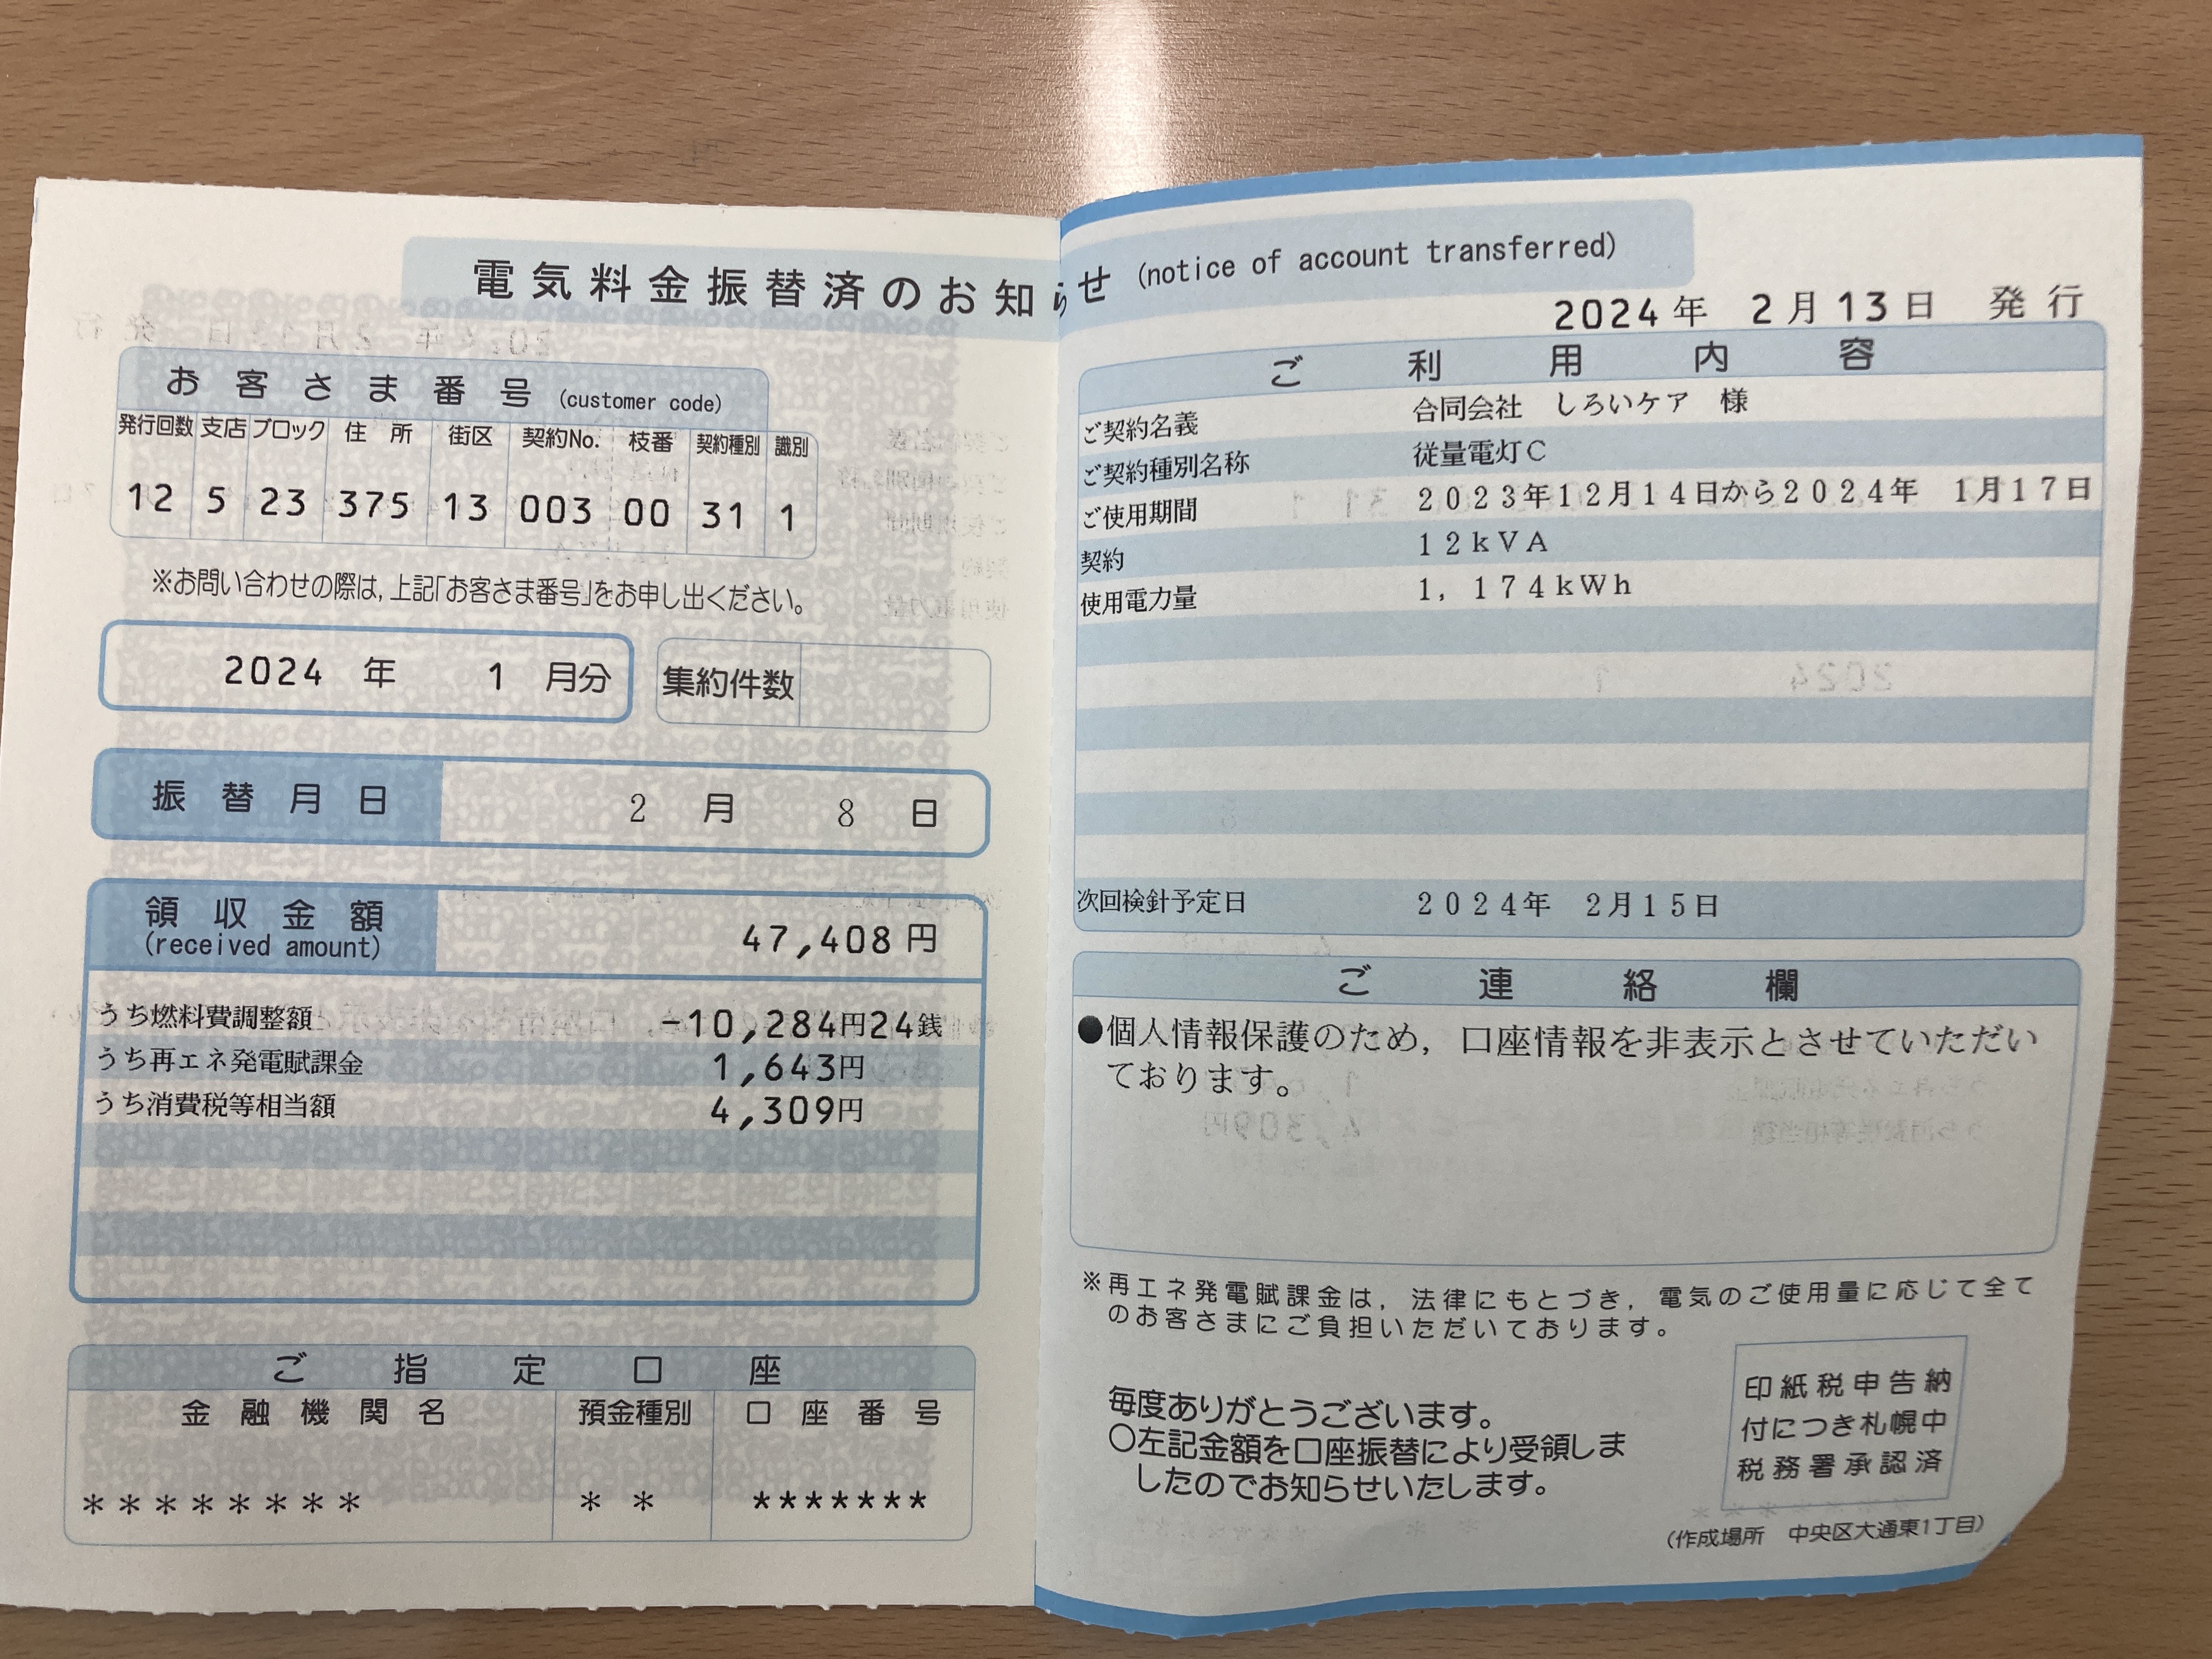 電気料金振替済のお知らせ (notice of account transferred)
お客さま番号 (customer code)
発行回数 支店 ブロック 住所 街区 契約No. 枝番 契約種別 識別
12 5 23 375 13 003 00 31 1
※お問い合わせの際は,上記「お客さま番号」をお申し出ください。
2024 年 1 月分 集約件数
振替月日 2 月 8 日
領収金額 47,408 円
(received amount)
うち燃料費調整額 -10,284円24銭
うち再エネ発電賦課金 1,643円
うち消費税等相当額 4,309円
ご指定口座
金融機関名 預金種別 口座番号
******** ** *******
2024年 2月13日 発行
ご利用内容
ご契約名義 合同会社 しろいケア 様
ご契約種別名称 従量電灯C
ご使用期間 2023年12月14日から2024年 1月17日
契約 12kVA
使用電力量 1,174kWh
次回検針予定日 2024年 2月15日
ご連絡欄
●個人情報保護のため,口座情報を非表示とさせていただい
ております。
※再エネ発電賦課金は,法律にもとづき,電気のご使用量に応じて全て
のお客さまにご負担いただいております。
毎度ありがとうございます。
○左記金額を口座振替により受領しま
したのでお知らせいたします。
印紙税申告納
付につき札幌中
税務署承認済
(作成場所 中央区大通東1丁目)